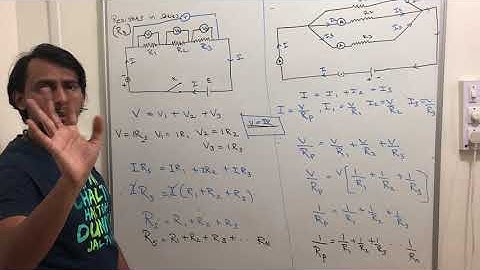 Resistors in Series
(Rs)
R1 R2 R3
I
I
K
E
V = V1 + V2 + V3
V = IRs V1 = IR1 V2 = IR2
V3 = IR3
IRs = IR1 + IR2 + IR3
IRs = I(R1 + R2 + R3)
Rs = R1 + R2 + R3
Rs = R1 + R2 + R3 + ... Rn
V = IR
R2
I3
R3
I
I
I = I1 + I2 + I3
I = V/Rp , I1 = V/R1 I2 = V/R2 I3 = V/R3
V/Rp = V/R1 + V/R2 + V/R3
V/Rp = V[1/R1 + 1/R2 + 1/R3]
1/Rp = 1/R1 + 1/R2 + 1/R3
1/Rp = 1/R1 + 1/R2 + 1/R3 ... 1/Rn
CHAL
HAT
DUN
JALT